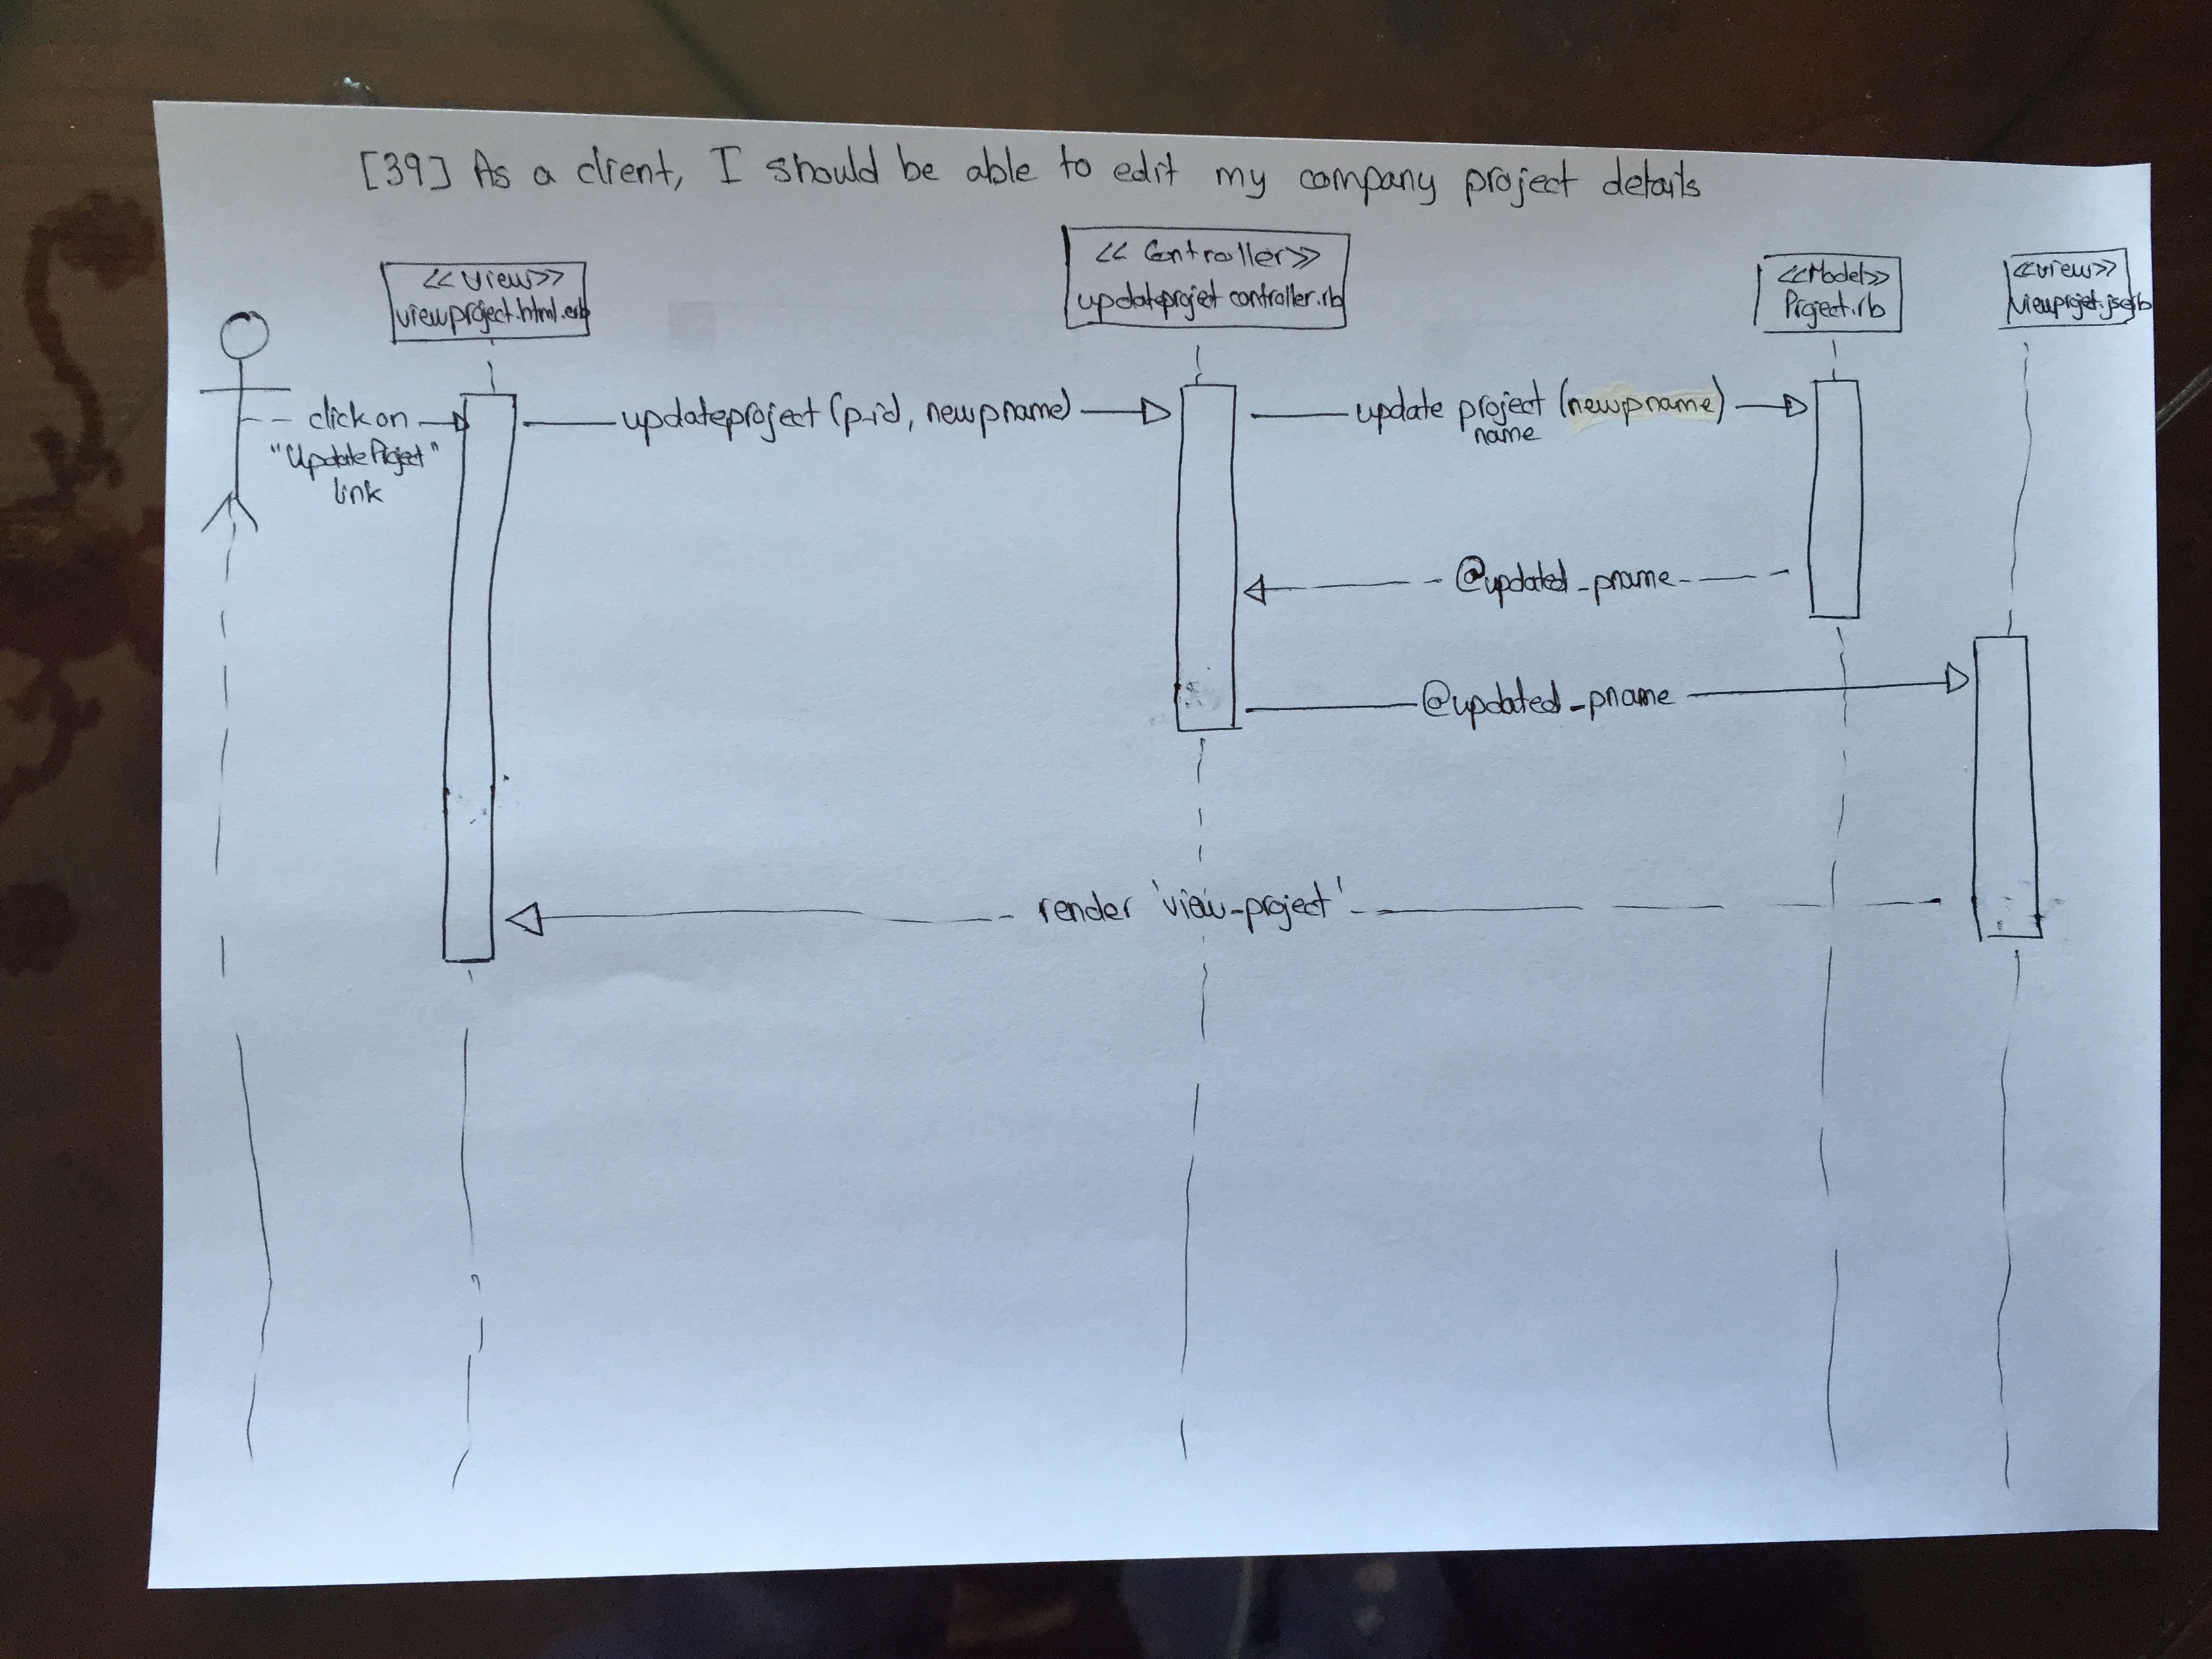 [39] As a client, I should be able to edit my company project details
<<View>>
viewproject.html.erb
<< Controller>>
updateproject controller.rb
<<Model>>
Project.rb
<<view>>
viewproject.js.erb
click on
"Update Project"
link
updateproject (p_id, newpname)
update project (newpname)
name
@updated_pname
@updated_pname
render 'view_project'